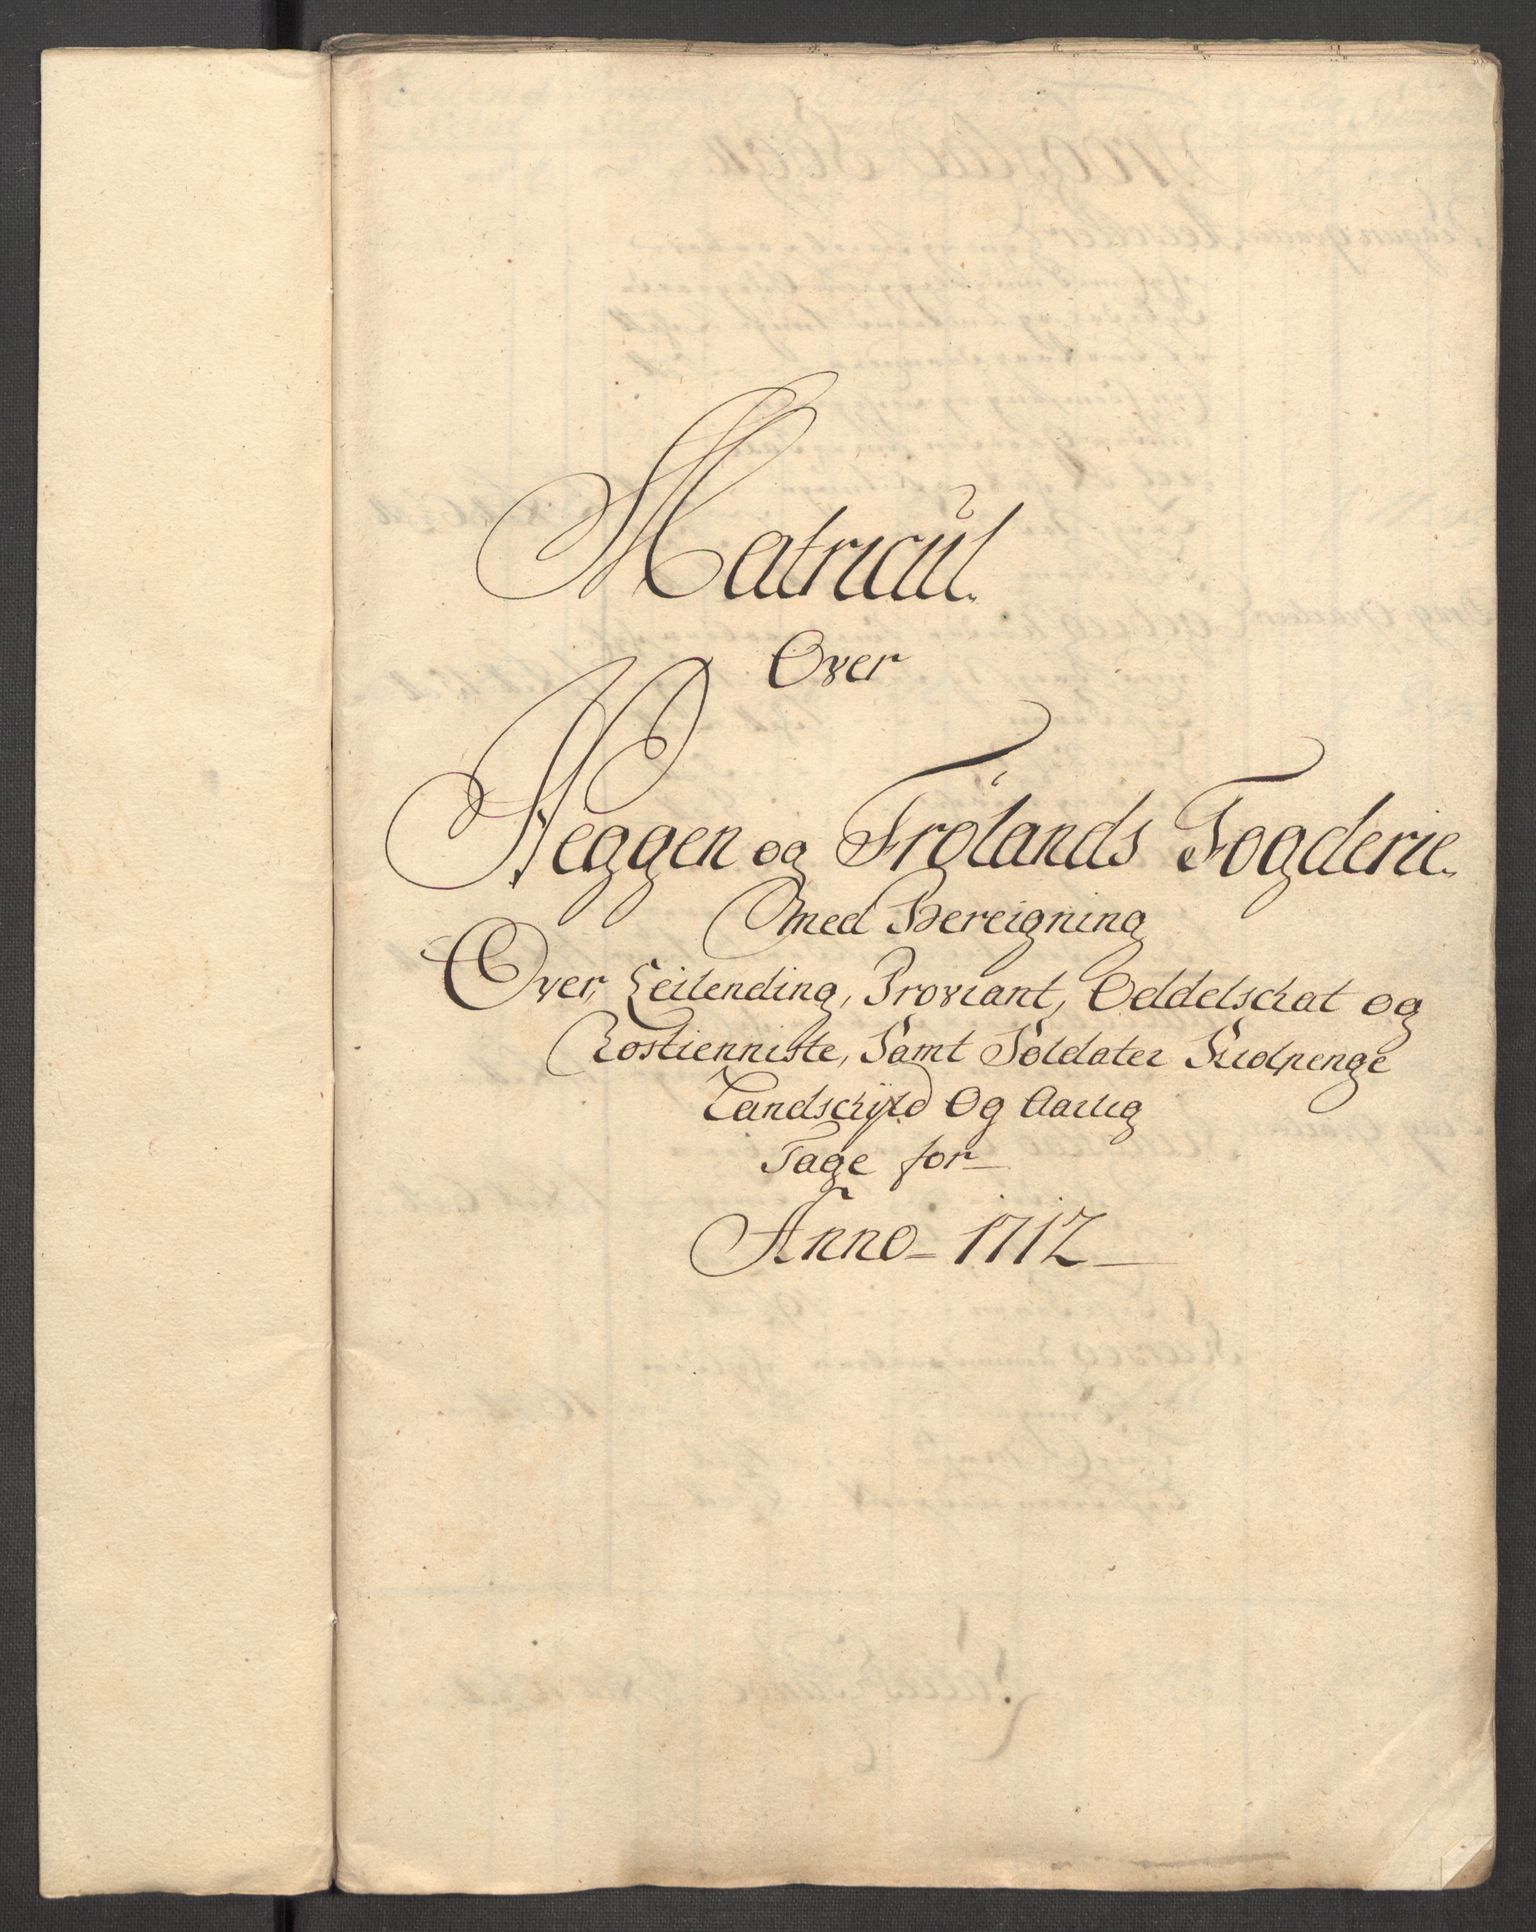 Matricul.
Over
Heggen og Frølands Fogderie.
med Bereigning
Over, Leilending, Proviant, Oddelschat og
Rostienniste, Samt Soldater Skolpenge
Landschÿld Og Aarlig
Tage for
Anno 1712